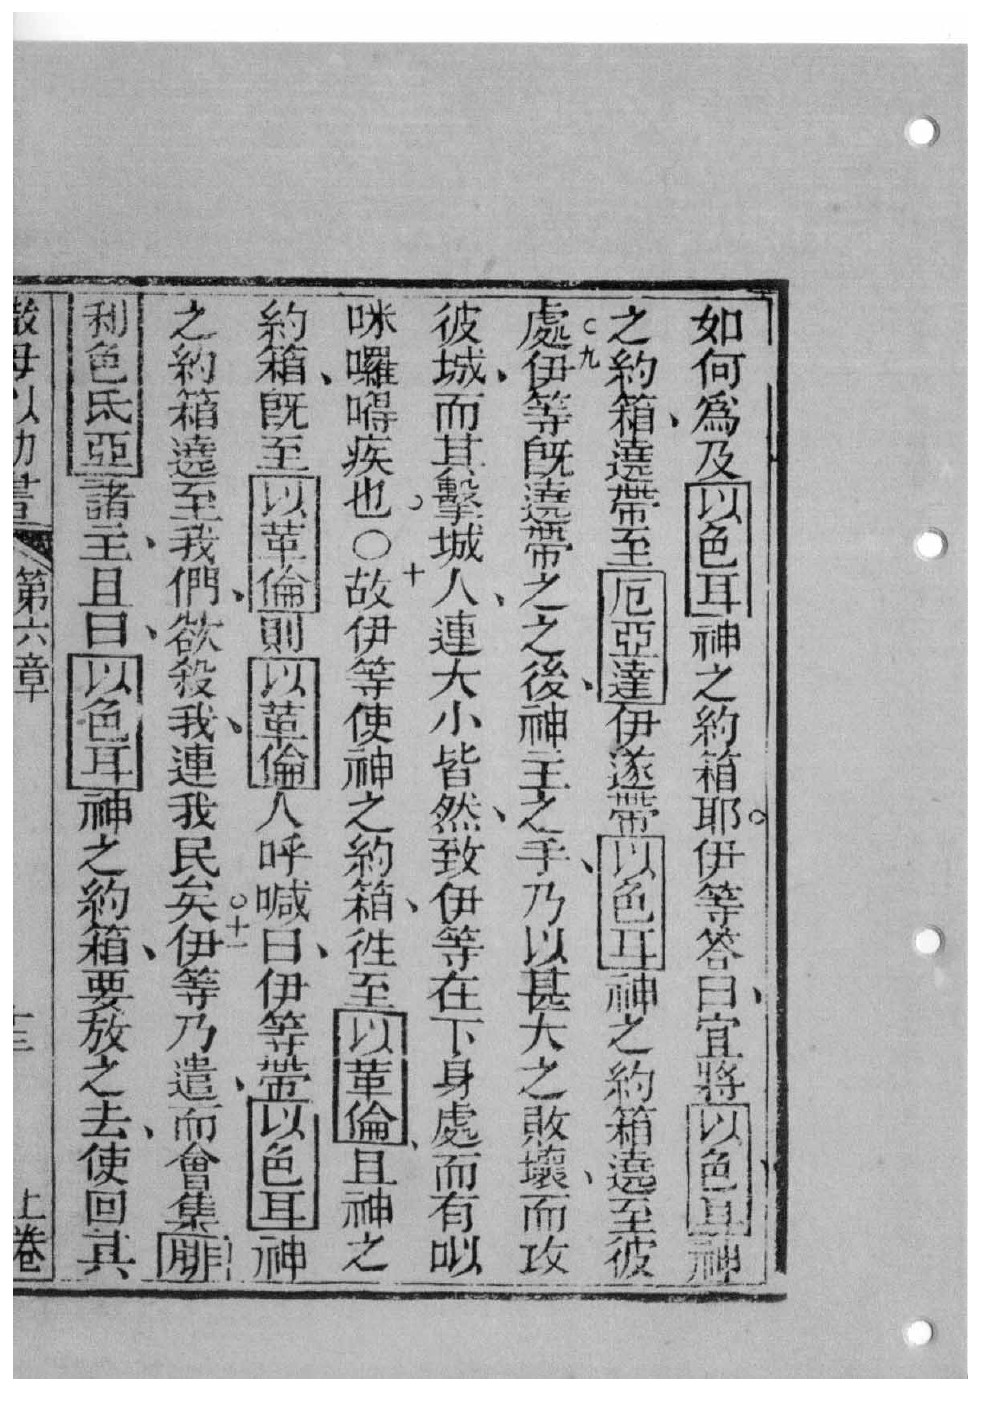 如何爲及以色耳神之約箱耶。伊等答曰、宜將以色耳神
之約箱、遶帶至厄亞達伊遂帶以色耳神之約箱遶至彼
處○九伊等旣遶帶之之後、神主之手、乃以甚大之敗壞、而攻
彼城、而其擊城人、連大小皆然、致伊等在下身處而有呦
咪囉嘚疾也。○十故伊等使神之約箱、徃至以革倫、且神之
約箱、旣至以革倫則以革倫人呼喊曰、伊等帶以色耳神
之約箱遶至我們、欲殺我、連我民矣○十一伊等乃遣、而會集腓
利色氐亞諸主、且曰、以色耳神之約箱、要放之去、使回其
母以勿書 第六章 十三 上卷